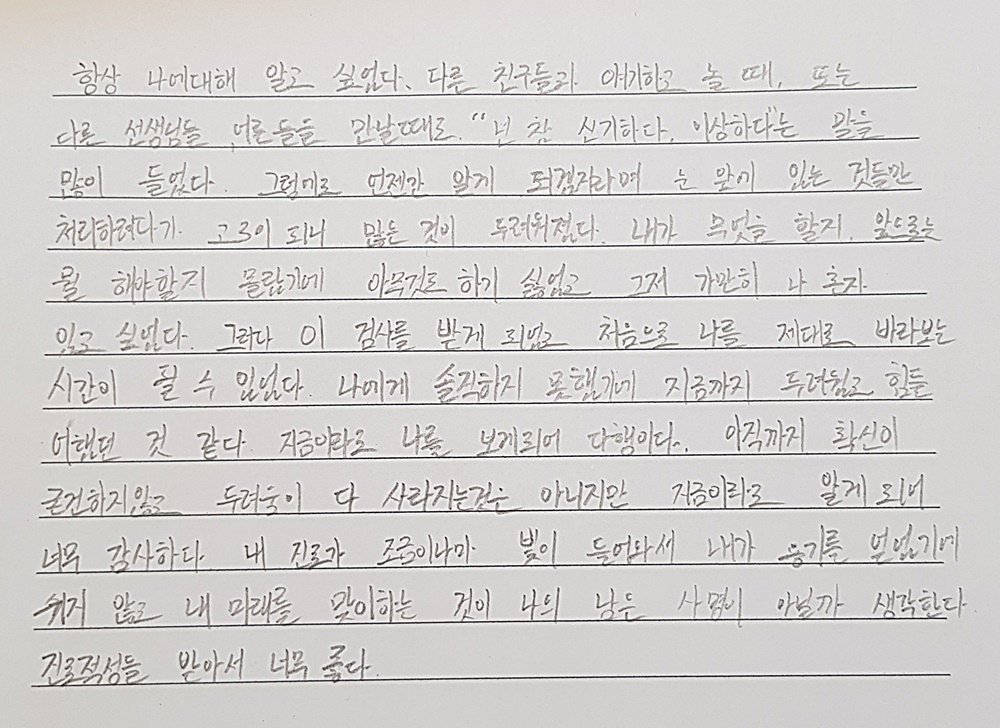 항상 나에대해 알고 싶었다. 다른 친구들과 얘기하고 놀 때, 또는
다른 선생님들, 어른들을 만날때마다. "넌 참 신기하다, 이상하다"는 말을
많이 들었다. 그렇기에 언젠간 알게 되겠지라며 눈 앞에 있는 것들만
처리하려다가. 고3이 되니 많은 것이 두려워졌다. 내가 무엇을 할지. 앞으로는
뭘 해야할지 몰랐기에 아무것도 하기 싫었고 그저 가만히 나 혼자
있고 싶었다. 그러다 이 검사를 받게 되었고 처음으로 나를 제대로 바라보는
시간이 될 수 있었다. 나에게 솔직하지 못했기에 지금까지 두려웠고 힘들
어했던 것 같다. 지금이라도 나를 보게되어 다행이다. 아직까지 확신이
굳건하지않고 두려움이 다 사라지는것은 아니지만 지금이라도 알게 되어
너무 감사하다. 내 진로가 조금이나마 빛이 들어와서 내가 용기를 얻었기에
쉬지 않고 내 미래를 맞이하는 것이 나의 남은 사명이 아닐까 생각한다.
진로적성을 받아서 너무 좋다.